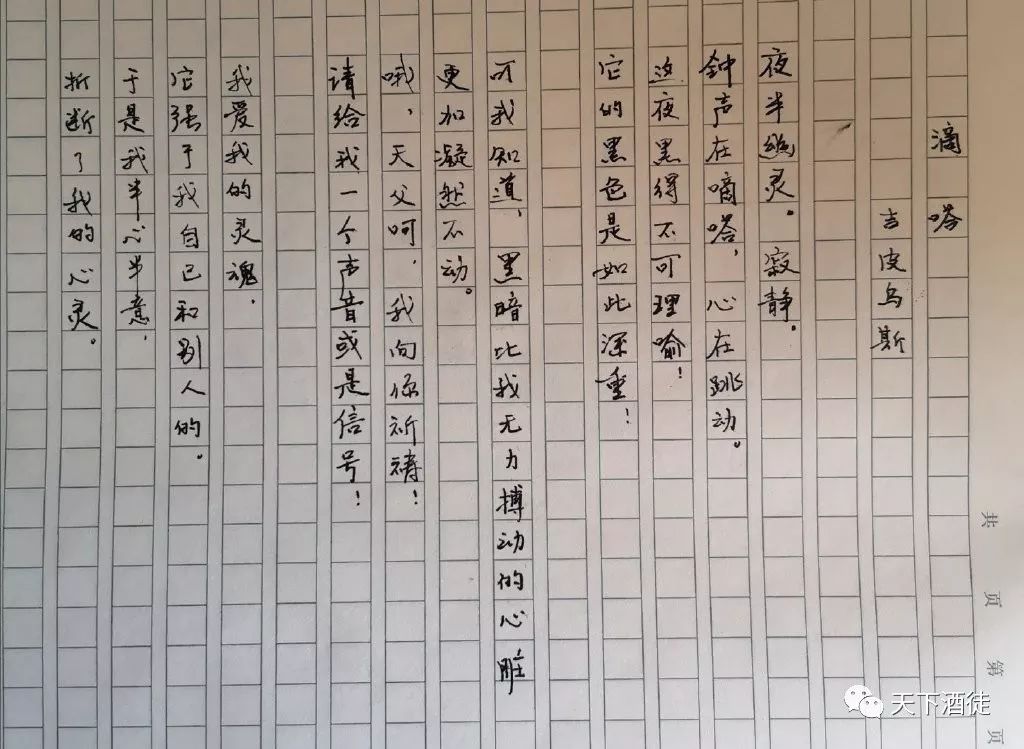 滴嗒
吉皮乌斯
夜半幽灵。寂静。
钟声在嘀嗒，心在跳动。
这夜黑得不可理喻！
它的黑色是如此深重！
可我知道，黑暗比我无力搏动的心脏
更加凝然不动。
哦，天父呵，我向你祈祷！
请给我一个声音或是信号！
我爱我的灵魂，
它强于我自己和别人的。
于是我半心半意，
折断了我的心灵。
共 页 第 页
天下酒徒